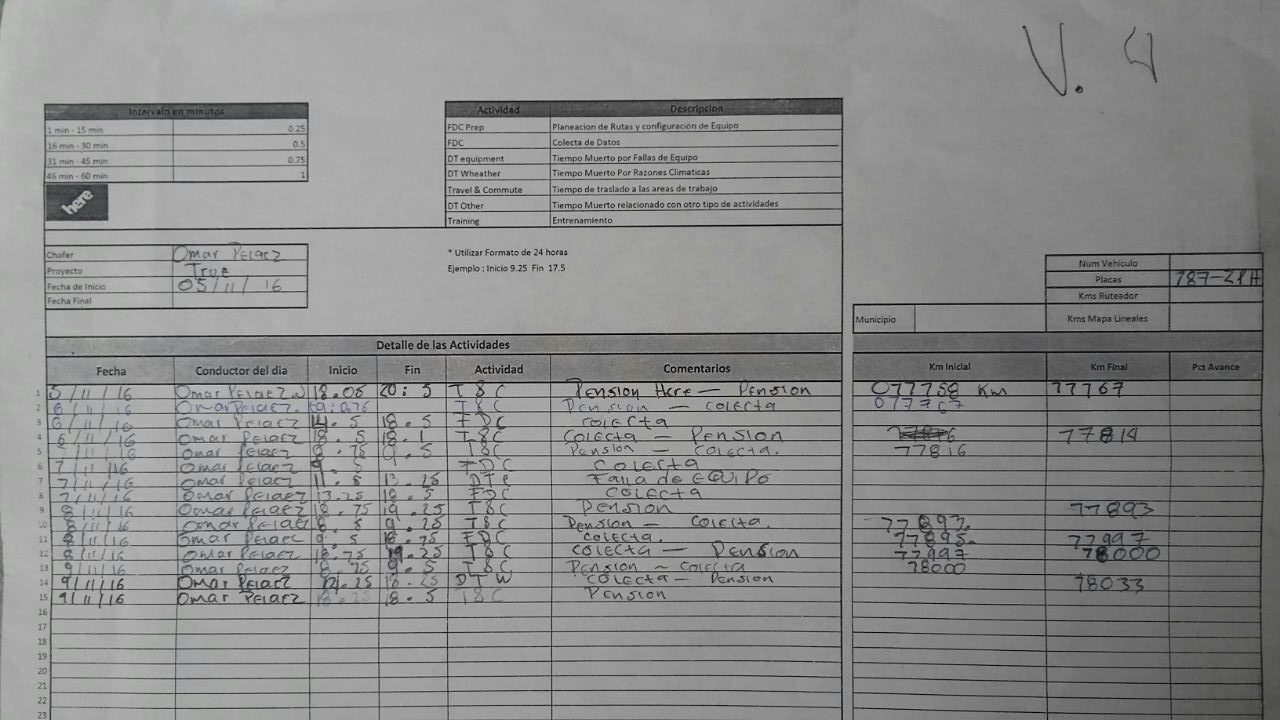 V. 4
Intervalo en minutos
1 min - 15 min 0.25
16 min - 30 min 0.5
31 min - 45 min 0.75
46 min - 60 min 1
here
Actividad Descripcion
FDC Prep Planeacion de Rutas y configuración de Equipo
FDC Colecta de Datos
DT equipment Tiempo Muerto por Fallas de Equipo
DT Wheather Tiempo Muerto Por Razones Climaticas
Travel & Commute Tiempo de traslado a las areas de trabajo
DT Other Tiempo Muerto relacionado con otro tipo de actividades
Training Entrenamiento
Chofer Omar Pelaez
Proyecto True
Fecha de Inicio 05/11/16
Fecha Final
* Utilizar Formato de 24 horas
Ejemplo : Inicio 9.25 Fin 17.5
Num Vehículo
Placas
Kms Ruteador
Municipio Kms Mapa Lineales
Detalle de las Actividades
Fecha Conductor del dia Inicio Fin Actividad Comentarios Km Inicial Km Final Pct Avance
1 5/11/16 Omar Pelaez 18.05 20:5 T&C Pension Here — Pension 077758 Km 77767
2 6/11/16 Omar Pelaez. T&C Pension — colecta 077767
3 6/11/16 Omar Pelaez 18.5 FDC colecta
4 6/11/16 Omar Pelaez T&C Colecta — Pension 77814
5 Omar Pelaez T&C Pension — Colecta. 77816
6 7/11/16 Omar Pelaez FDC Colecta
7 7/11/16 Omar Pelaez 13.25 Falla de EQUIPO
8 7/11/16 Omar Pelaez 13.25 18.5 FDC Colecta
9 8/11/16 Omar Pelaez 18.75 19.25 T&C Pension 77893
10 8/11/16 Omar Pelaez 8.5 9.25 T&C Pension — Colecta. 77893.
11 8/11/16 Omar Pelaez 9.5 18.75 FDC colecta. 77895. 77997
12 8/11/16 Omar Pelaez 18.75 19.25 T&C colecta — Pension 77997 78000
13 9/11/16 Omar Pelaez 8.75 9.5 T&C Pension – Colecta 78000
14 9/11/16 Omar Pelaez 18.25 DTW colecta — Pension 78033
15 9/11/16 Omar Pelaez 18.25 18.5 T&C Pension
16
17
18
19
20
21
22
23